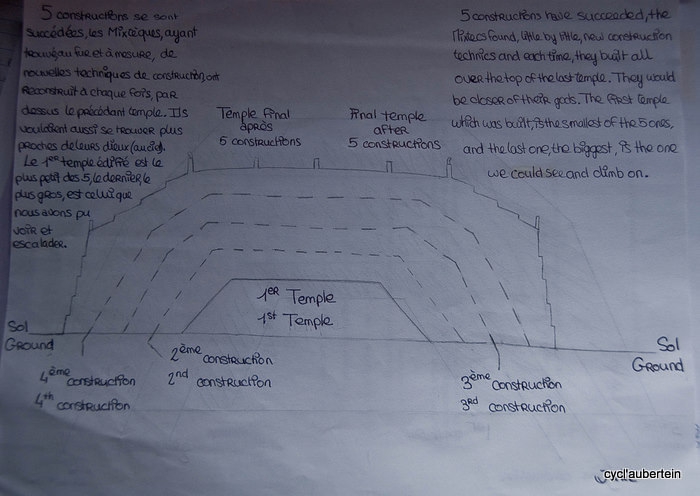 5 constructions se sont
succédées, les Mixtèques, ayant
trouvé au fur et à mesure, de
nouvelles techniques de construction, ont
Reconstruit à chaque fois, par
dessus le précédant temple. Ils
voulaient aussi se trouver plus
proches de leurs dieux (au ciel).
Le 1er temple édifié est le
plus petit des 5, le dernier, le
plus gros, est celui que
nous avons pu
voir et
escalader.
5 constructions have succeeded, the
Mixtecs found, little by little, new construction
technics and each time, they built all
over the top of the last temple. They would
be closer of their gods. The first temple
which was built, is the smallest of the 5 ones,
and the last one, the biggest, is the one
we could see and climb on.
Temple final
après
5 constructions
Final temple
after
5 constructions
1ER Temple
1st Temple
Sol
GROUND
Sol
GROUND
2ème construction
2nd construction
4ème construction
4th construction
3ème construction
3RD construction
cycl'aubertein